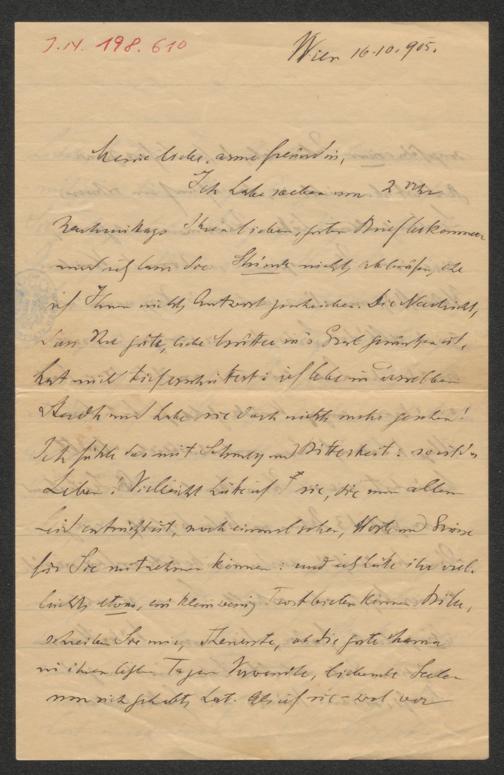 J.N. 198.610
Wien 16.10.905.
Meine liebe, arme Freundin,
Ich habe soeben um 2 Uhr
Nachmittags Ihren lieben, guten Brief bekommen
und ich lasse die Stunde nicht ablaufen, ehe
ich Ihnen nicht Antwort geschrieben. Die Nachricht,
dass Ihre gute, liebe Mutter in's Grab gesunken ist,
hat mich tief erschüttert: ich lebe in derselben
Stadt und habe sie doch nicht mehr gesehen!
Ich fühle das mit Schmerz und Bitterkeit: so ist das
Leben! Vielleicht hätte ich sie, die nun allem
Leid entrückt ist, noch einmal sehen, Worte und Grüsse
für Sie mitnehmen können: und ich hätte ihr viel-
leicht etwas, ein klein wenig Trost bieten können. Bitte,
schreiben Sie mir, Theuerste, ob die gute Mama
in ihren letzten Tagen Verwandte, liebende Seelen
um sich gehabt hat. Als ich sie – vor